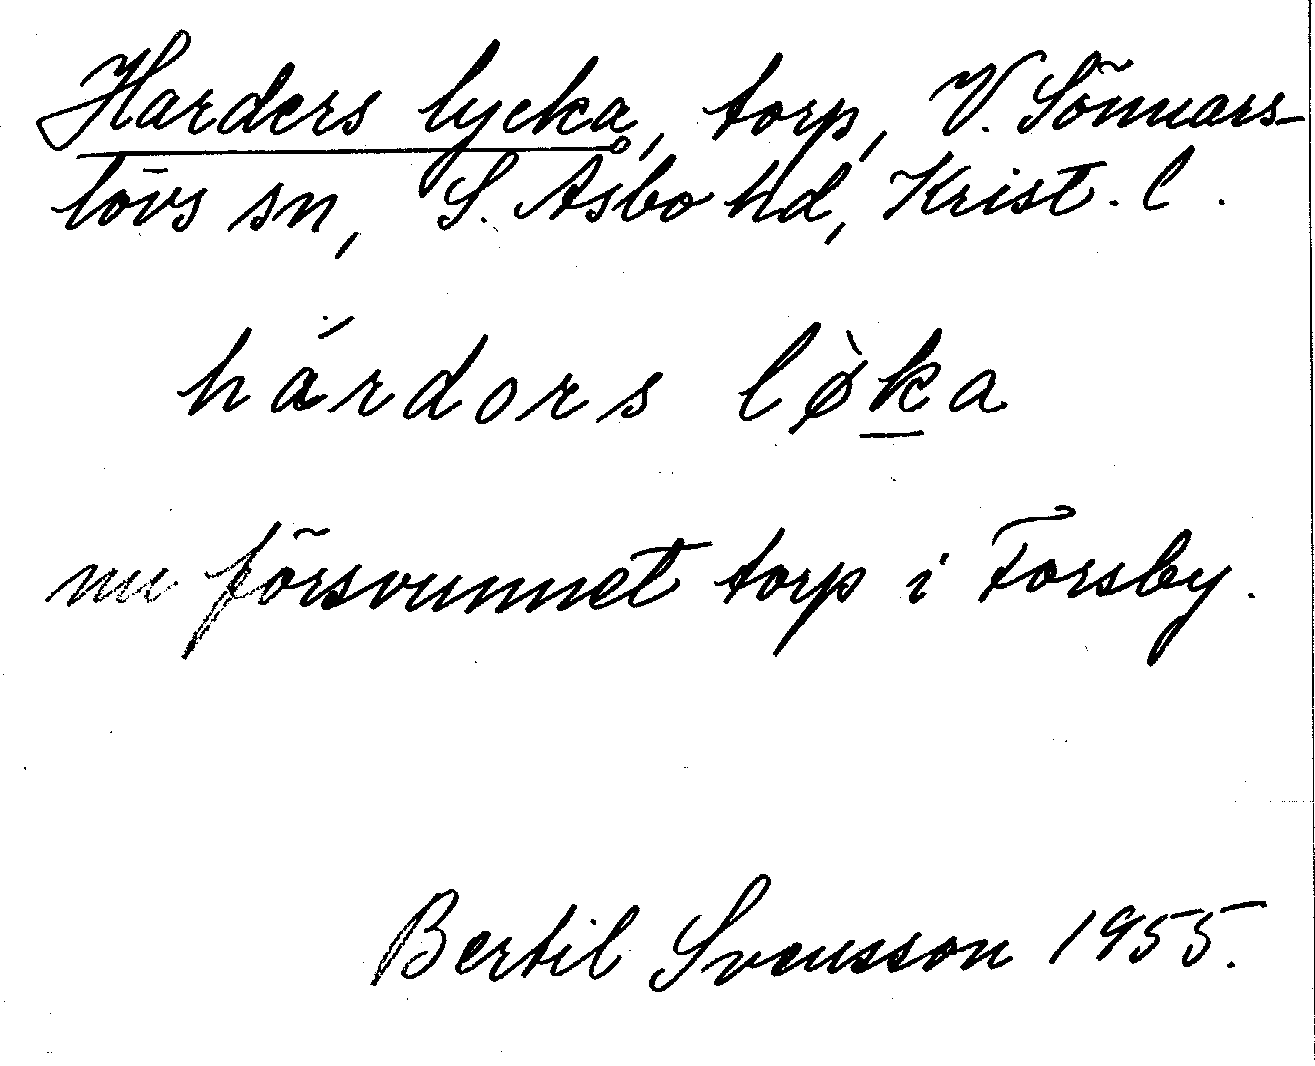 Harders lycka, torp, V. Sönnars-
lövs sn, S. Åsbo hd, Krist. l.
hárdors lø̀ka
nu försvunnet torp i Forsby.
Bertil Svensson 1955.